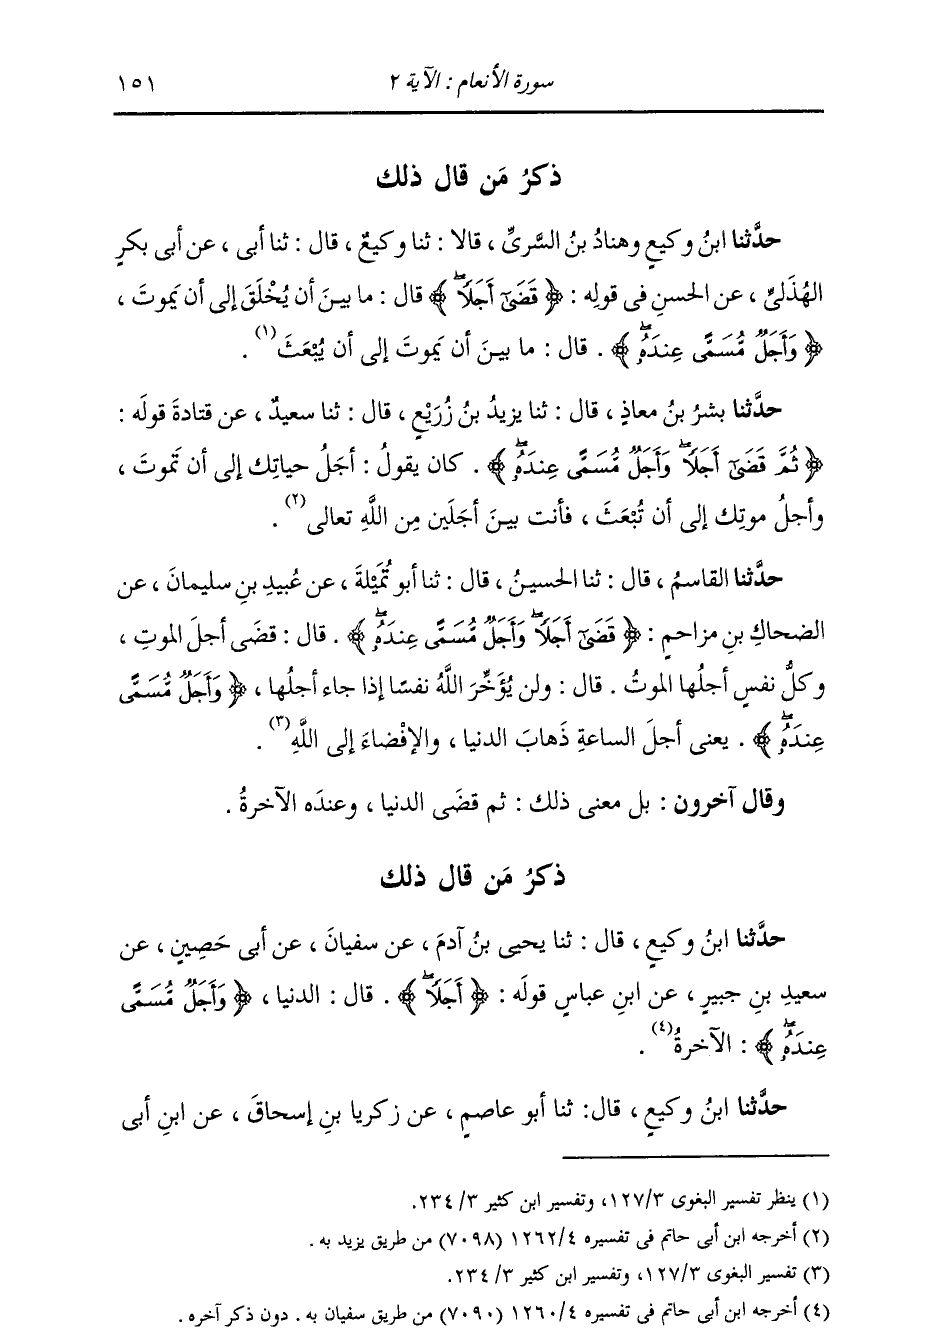 سورة الأنعام : الآية ٢ ١٥١
ذكرُ مَن قال ذلك
حدَّثنا ابنُ وكيعٍ وهنادُ بنُ السَّرىِّ ، قالا : ثنا وكيعٌ ، قال : ثنا أبى ، عن أبى بكرٍ
الهُذَلىِّ ، عن الحسنِ فى قولِه : ﴿ قَضَىٰٓ أَجَلًاۖ ﴾ قال : ما بينَ أن يُخْلَقَ إلى أن يَموتَ ،
﴿ وَأَجَلٌ مُّسَمًّى عِندَهُۥۖ ﴾ . قال : ما بينَ أن يَموتَ إلى أن يُبْعَثَ(١) .
حدَّثنا بشرُ بنُ معاذٍ ، قال : ثنا يزيدُ بنُ زُرَيْعٍ ، قال : ثنا سعيدٌ ، عن قتادةَ قولَه :
﴿ ثُمَّ قَضَىٰٓ أَجَلًاۖ وَأَجَلٌ مُّسَمًّى عِندَهُۥۖ ﴾ . كان يقولُ : أجَلُ حياتِك إلى أن تَموتَ ،
وأجلُ موتِك إلى أن تُبْعَثَ ، فأنت بينَ أجَلَين مِن اللَّهِ تعالى(٢) .
حدَّثنا القاسمُ ، قال : ثنا الحسينُ ، قال : ثنا أبو تُمَيْلةَ ، عن عُبيدِ بنِ سليمانَ ، عن
الضحاكِ بنِ مزاحمٍ : ﴿ قَضَىٰٓ أَجَلًاۖ وَأَجَلٌ مُّسَمًّى عِندَهُۥۖ ﴾ . قال : قضَى أجلَ الموتِ ،
وكلُّ نفسٍ أجلُها الموتُ . قال : ولن يُؤَخِّرَ اللَّهُ نفسًا إذا جاء أجلُها ، ﴿ وَأَجَلٌ مُّسَمًّى
عِندَهُۥۖ ﴾ . يعنى أجلَ الساعةِ ذَهابَ الدنيا ، والإفْضاءَ إلى اللَّهِ(٣) .
وقال آخرون : بل معنى ذلك : ثم قضَى الدنيا ، وعندَه الآخرةُ .
ذكرُ مَن قال ذلك
حدَّثنا ابنُ وكيعٍ ، قال : ثنا يحيى بنُ آدمَ ، عن سفيانَ ، عن أبى حَصِينٍ ، عن
سعيدِ بنِ جبيرٍ ، عن ابنِ عباسٍ قولَه : ﴿ أَجَلًاۖ ﴾ . قال : الدنيا ، ﴿ وَأَجَلٌ مُّسَمًّى
عِندَهُۥۖ ﴾ : الآخرةُ(٤) .
حدَّثنا ابنُ وكيعٍ ، قال: ثنا أبو عاصمٍ ، عن زكريا بنِ إسحاقَ ، عن ابنِ أبى
(١) ينظر تفسير البغوى ١٢٧/٣، وتفسير ابن كثير ٣/ ٢٣٤.
(٢) أخرجه ابن أبى حاتم فى تفسيره ١٢٦٢/٤ (٧٠٩٨) من طريق يزيد به .
(٣) تفسير البغوى ١٢٧/٣، وتفسير ابن كثير ٣/ ٢٣٤.
(٤) أخرجه ابن أبى حاتم فى تفسيره ١٢٦٠/٤ (٧٠٩٠) من طريق سفيان به . دون ذكر آخره .